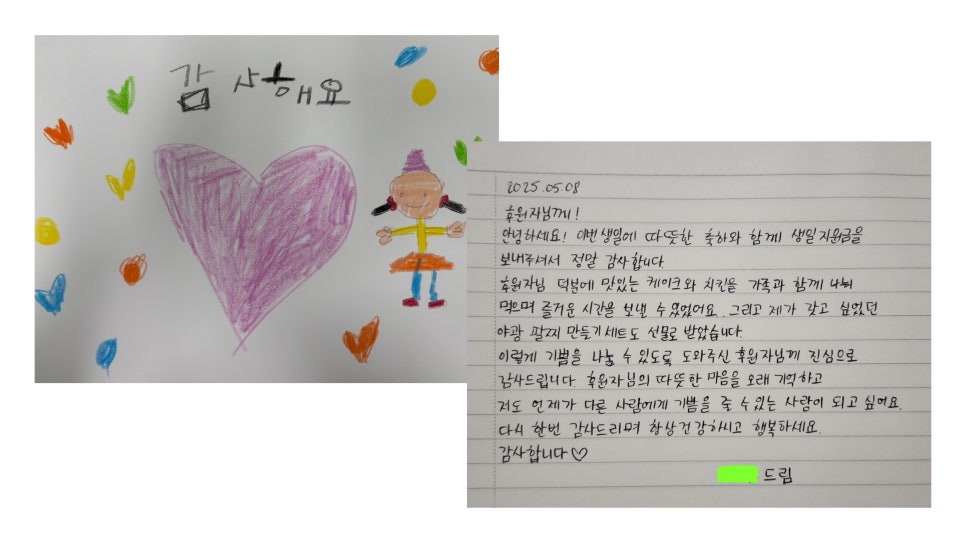 감사해요
2025.05.08
후원자님께!
안녕하세요! 이번생일에 따뜻한 축하와 함께 생일지원금을
보내주셔서 정말 감사합니다.
후원자님 덕분에 맛있는 케이크와 치킨을 가족과 함께 나눠
먹으며 즐거운 시간을 보낼 수 있었어요. 그리고 제가 갖고 싶었던
야광 팔찌 만들기세트도 선물로 받았습니다.
이렇게 기쁨을 나눌 수 있도록 도와주신 후원자님께 진심으로
감사드립니다. 후원자님의 따뜻한 마음을 오래 기억하고
저도 언젠가 다른 사람에게 기쁨을 줄 수 있는 사람이 되고 싶어요.
다시 한번 감사드리며 항상 건강하시고 행복하세요.
감사합니다♡
드림